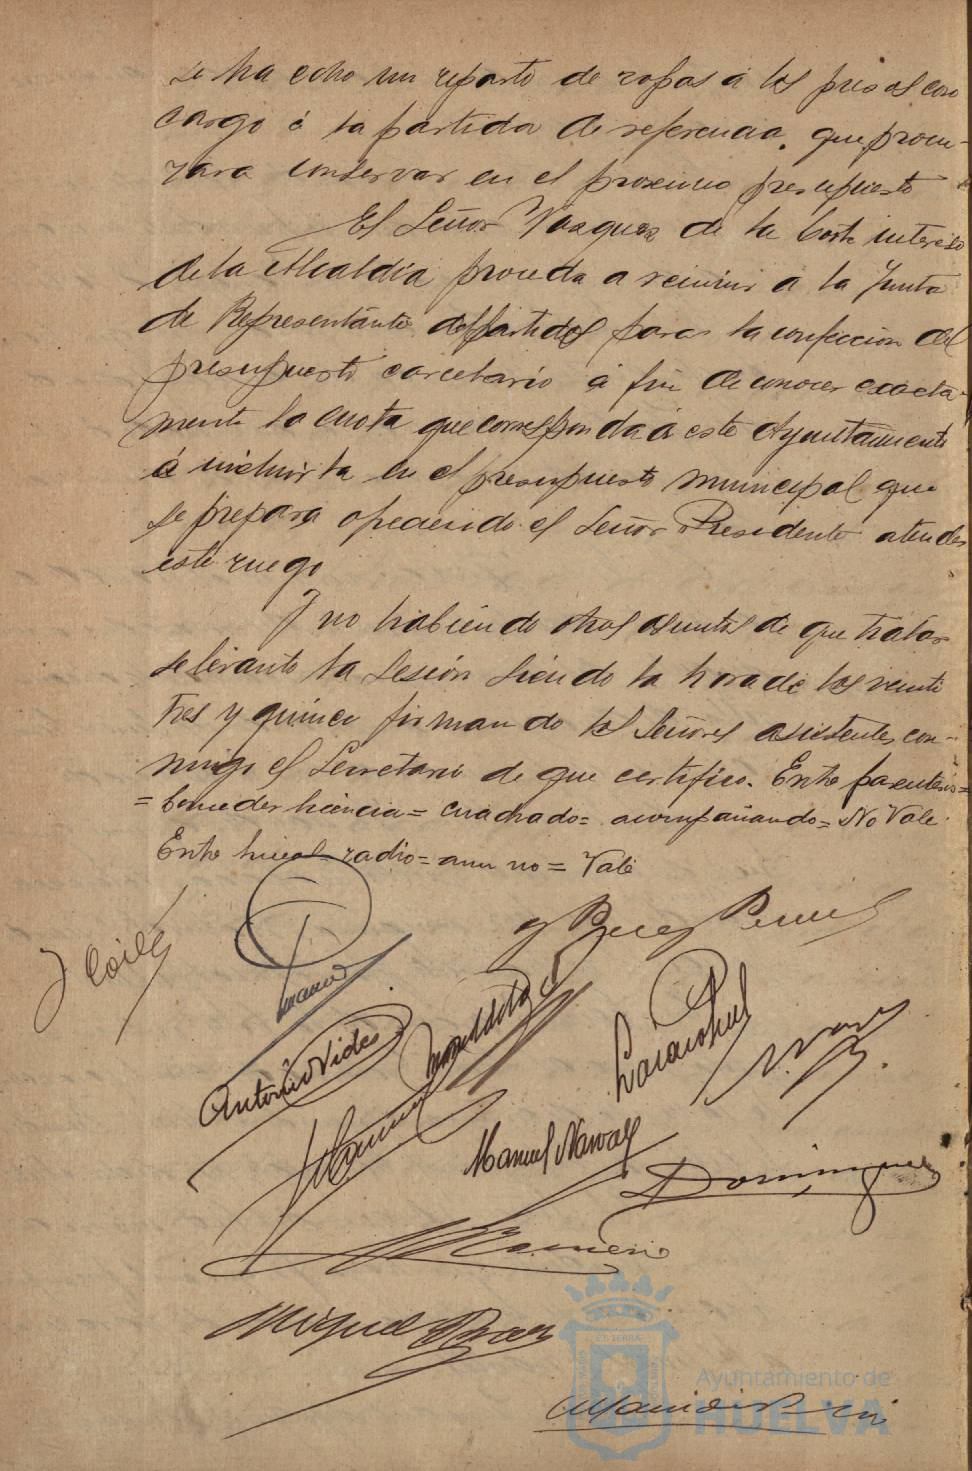 se ha echo un reparto de ropas á los presos con
cargo á la partida de referencia, que procu-
rara conservar en el proximo presupuesto
El Señor Vazquez de la Corte interesó
de la Alcaldia proceda a reunir á la Junta
de Representante del partidos para la confeccion del
presupuesto carcelario á fin de conocer exacta-
mente la cuota que corresponda á este Ayuntamiento
é incluirla en el presupuesto municipal que
se prepara ofreciendo el Señor Presidente atender
este ruego
Y no habiendo otros asuntos de que tratar
se levanto la sesión siendo la hora de las veinti
tres y quince firmando los Señores asistentes con-
migo el Secretario de que certifico. Entre parentesis=
=Conceder licencia= cuadrado= acompañando= No Vale.
Entre lineas= radio= = Vale
Antonio Vides
Manuel Navar
Dominguez
Romero
Miguel
Ayuntamiento de
HUELVA